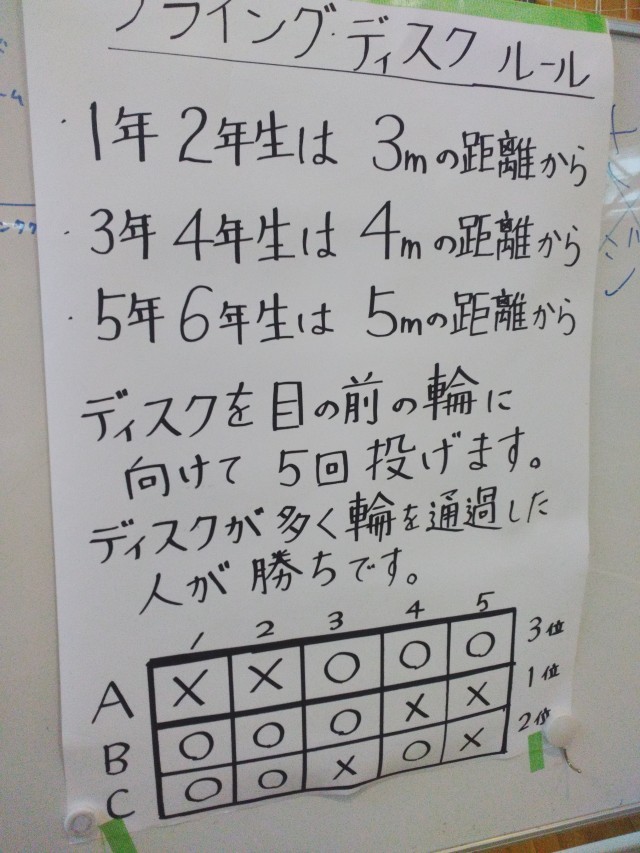 フライング・ディスク ルール
・1年 2年生は 3mの距離から
・3年 4年生は 4mの距離から
・5年 6年生は 5mの距離から
ディスクを目の前の輪に
向けて 5回 投げます。
ディスクが多く輪を通過した
人が勝ちです。
1 2 3 4 5
A × × ○ ○ ○ 3位
B ○ ○ ○ × × 1位
C ○ ○ × ○ × 2位